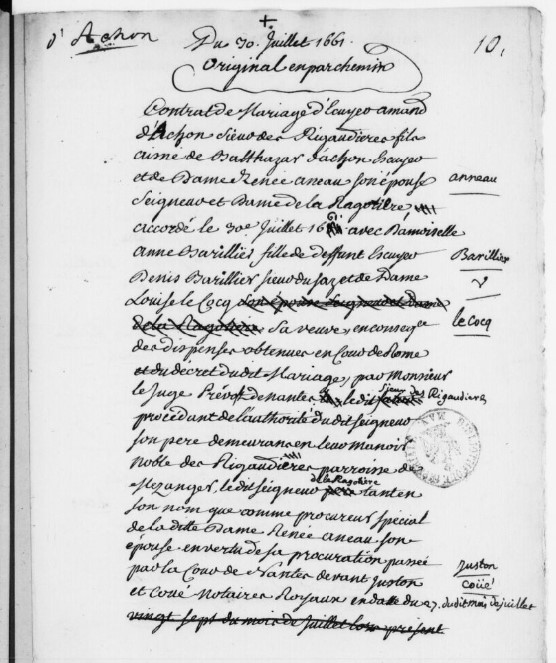 d'Achon
Du 30. Juillet 1661.
10.
Original en parchemin
Contrat de Mariage d'Ecuyer amand
d'Achon sieur des Rigaudieres fils
aisné de Balthazar d'achon Ecuyer
et de Dame Renée aneau son épouse
anneau
Seigneur et Dame de la Ragotière
accordé le 30e Juillet avec Damoiselle
anne Barillier fille de deffunt Escuyer
Barillier
Denis Barillier sieur du Faz et de Dame
Louise le Cocq son épouse Seigneur et Dame
le Cocq
de la Ragotiere sa veuve, en conseqce
des dispenses obtenues en Cour de Rome
et du décret dudit Mariage, par Monsieur
le Juge Prévost de nantes ledit sieur des Rigaudieres
procédant de l'authorité dudit seigneur
son pere demeurans en leur Manoir
noble des Rigaudieres parroisse de
Mezanger, ledit seigneur de la Ragotiere tant en
son nom que comme procureur spécial
de la ditte Dame Renée aneau son
épouse en vertu de sa procuration passée
par la Cour de Nantes devant Juston
Juston
et Coüé Notaires Royaux en datte du 27. dudit mois de juillet
Coüé
vingt sept du mois de Juillet lors présent